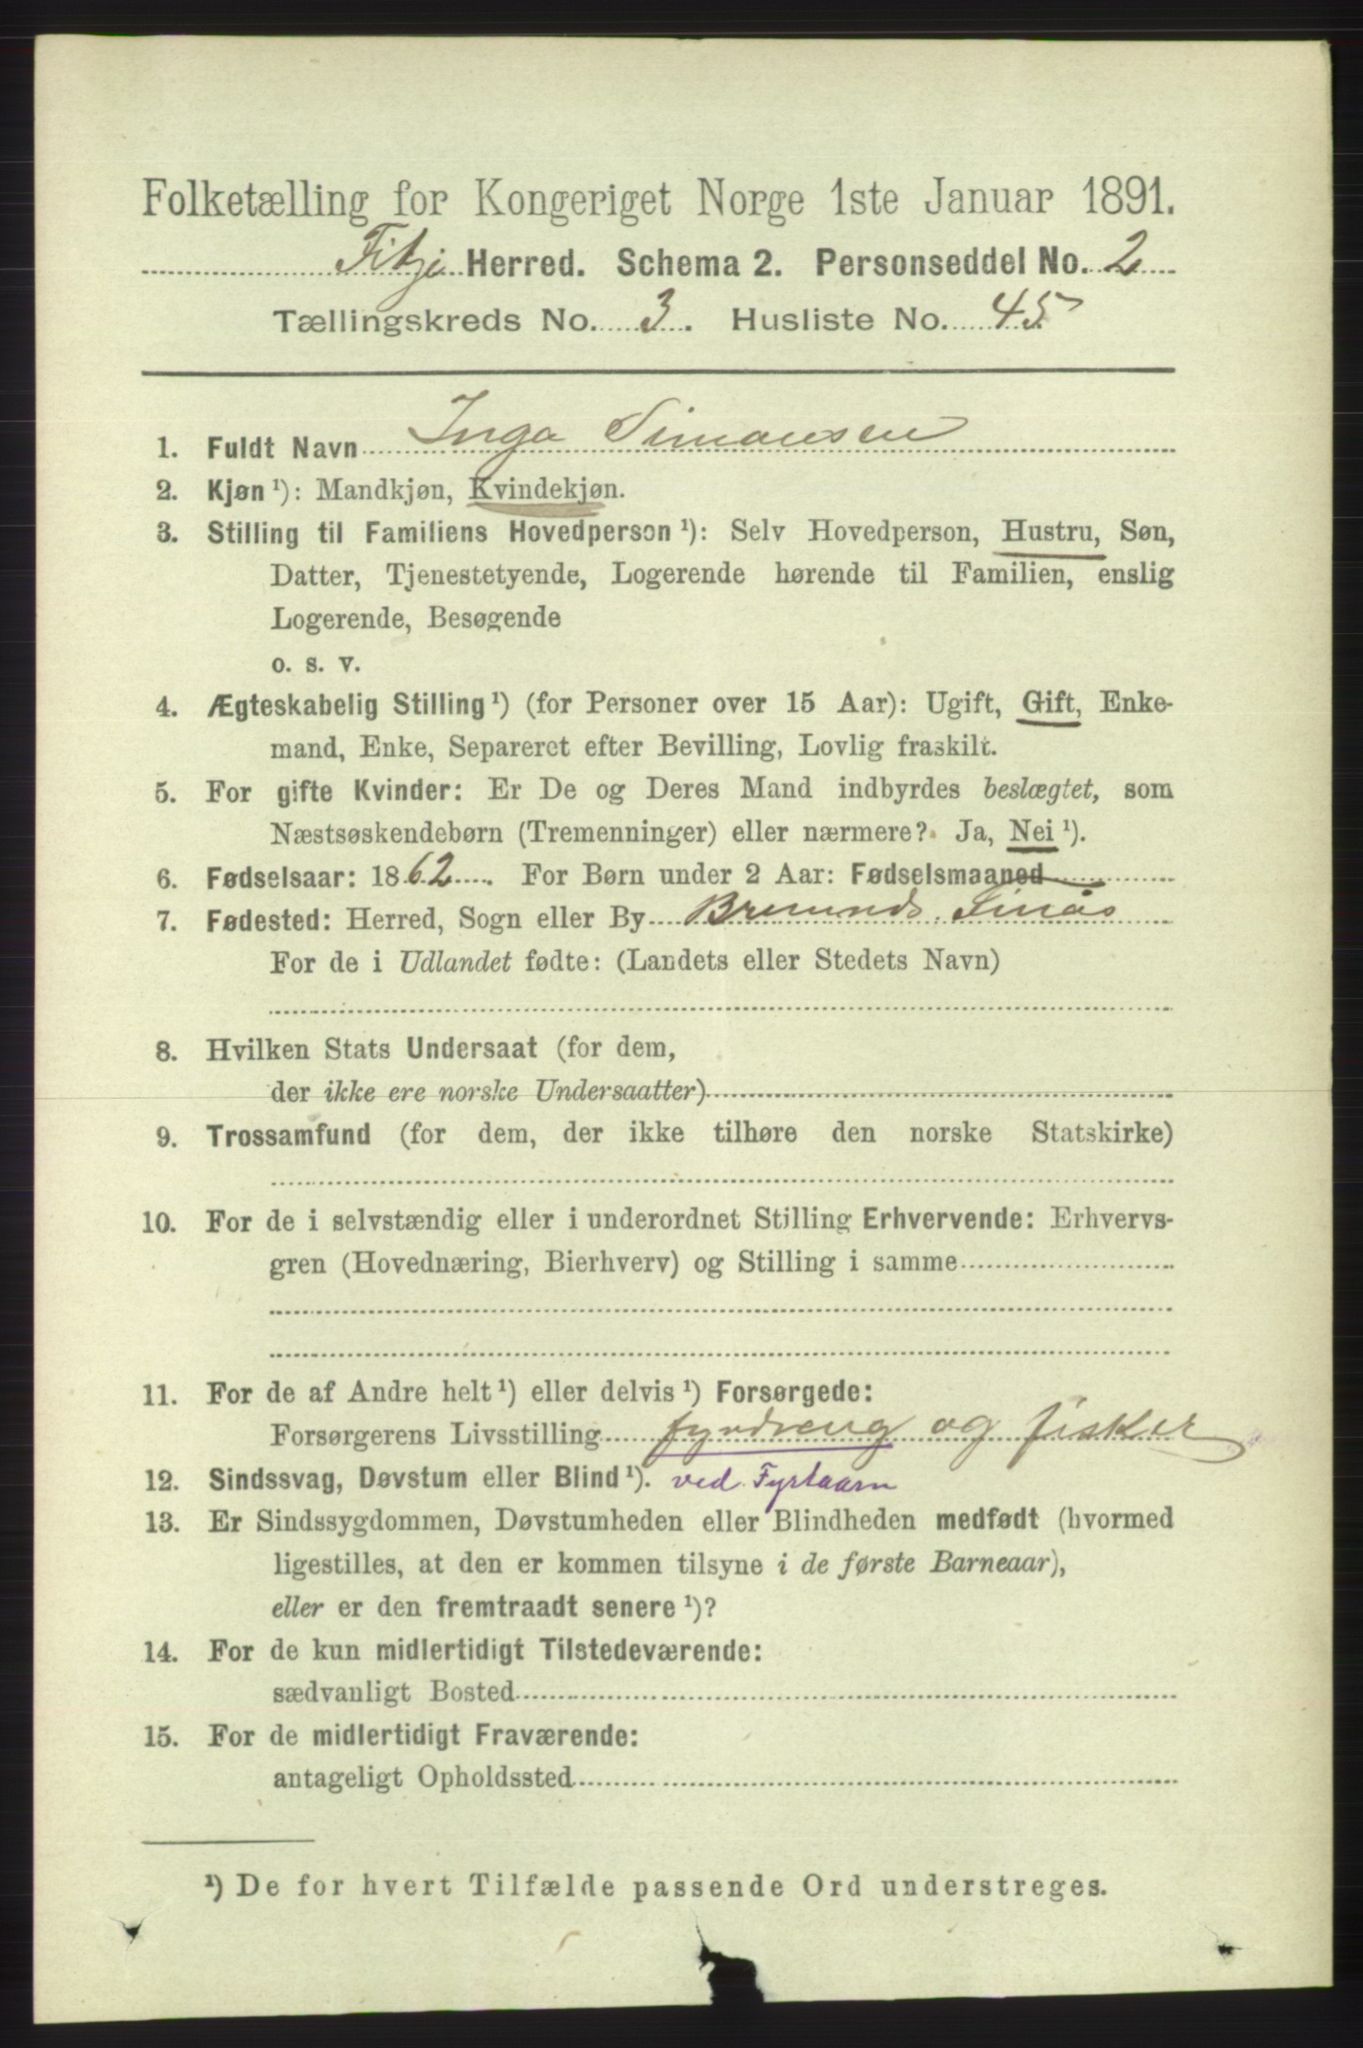 Folketælling for Kongeriget Norge 1ste Januar 1891.
Fitje Herred. Schema 2. Personseddel No. 2
Tællingskreds No. 3. Husliste No. 45
1. Fuldt Navn Inga Simonsen
2. Kjøn ¹): Mandkjøn, Kvindekjøn.
3. Stilling til Familiens Hovedperson ¹): Selv Hovedperson, Hustru, Søn,
Datter, Tjenestetyende, Logerende hørende til Familien, enslig
Logerende, Besøgende
o. s. v.
4. Ægteskabelig Stilling ¹) (for Personer over 15 Aar): Ugift, Gift, Enke-
mand, Enke, Separeret efter Bevilling, Lovlig fraskilt.
5. For gifte Kvinder: Er De og Deres Mand indbyrdes beslægtet, som
Næstsøskendebørn (Tremenninger) eller nærmere? Ja, Nei ¹).
6. Fødselsaar: 1862. For Børn under 2 Aar: Fødselsmaaned
7. Fødested: Herred, Sogn eller By
For de i Udlandet fødte: (Landets eller Stedets Navn)
8. Hvilken Stats Undersaat (for dem,
der ikke ere norske Undersaatter)
9. Trossamfund (for dem, der ikke tilhøre den norske Statskirke)
10. For de i selvstændig eller i underordnet Stilling Erhvervende: Erhvervs-
gren (Hovednæring, Bierhverv) og Stilling i samme
11. For de af Andre helt ¹) eller delvis ¹) Forsørgede:
Forsørgerens Livsstilling fyrdreng og fisker
12. Sindssvag, Døvstum eller Blind ¹). ved Fyrtaarn
13. Er Sindssygdommen, Døvstumheden eller Blindheden medfødt (hvormed
ligestilles, at den er kommen tilsyne i de første Barneaar),
eller er den fremtraadt senere ¹)?
14. For de kun midlertidigt Tilstedeværende:
sædvanligt Bosted
15. For de midlertidigt Fraværende:
antageligt Opholdssted
¹) De for hvert Tilfælde passende Ord understreges.